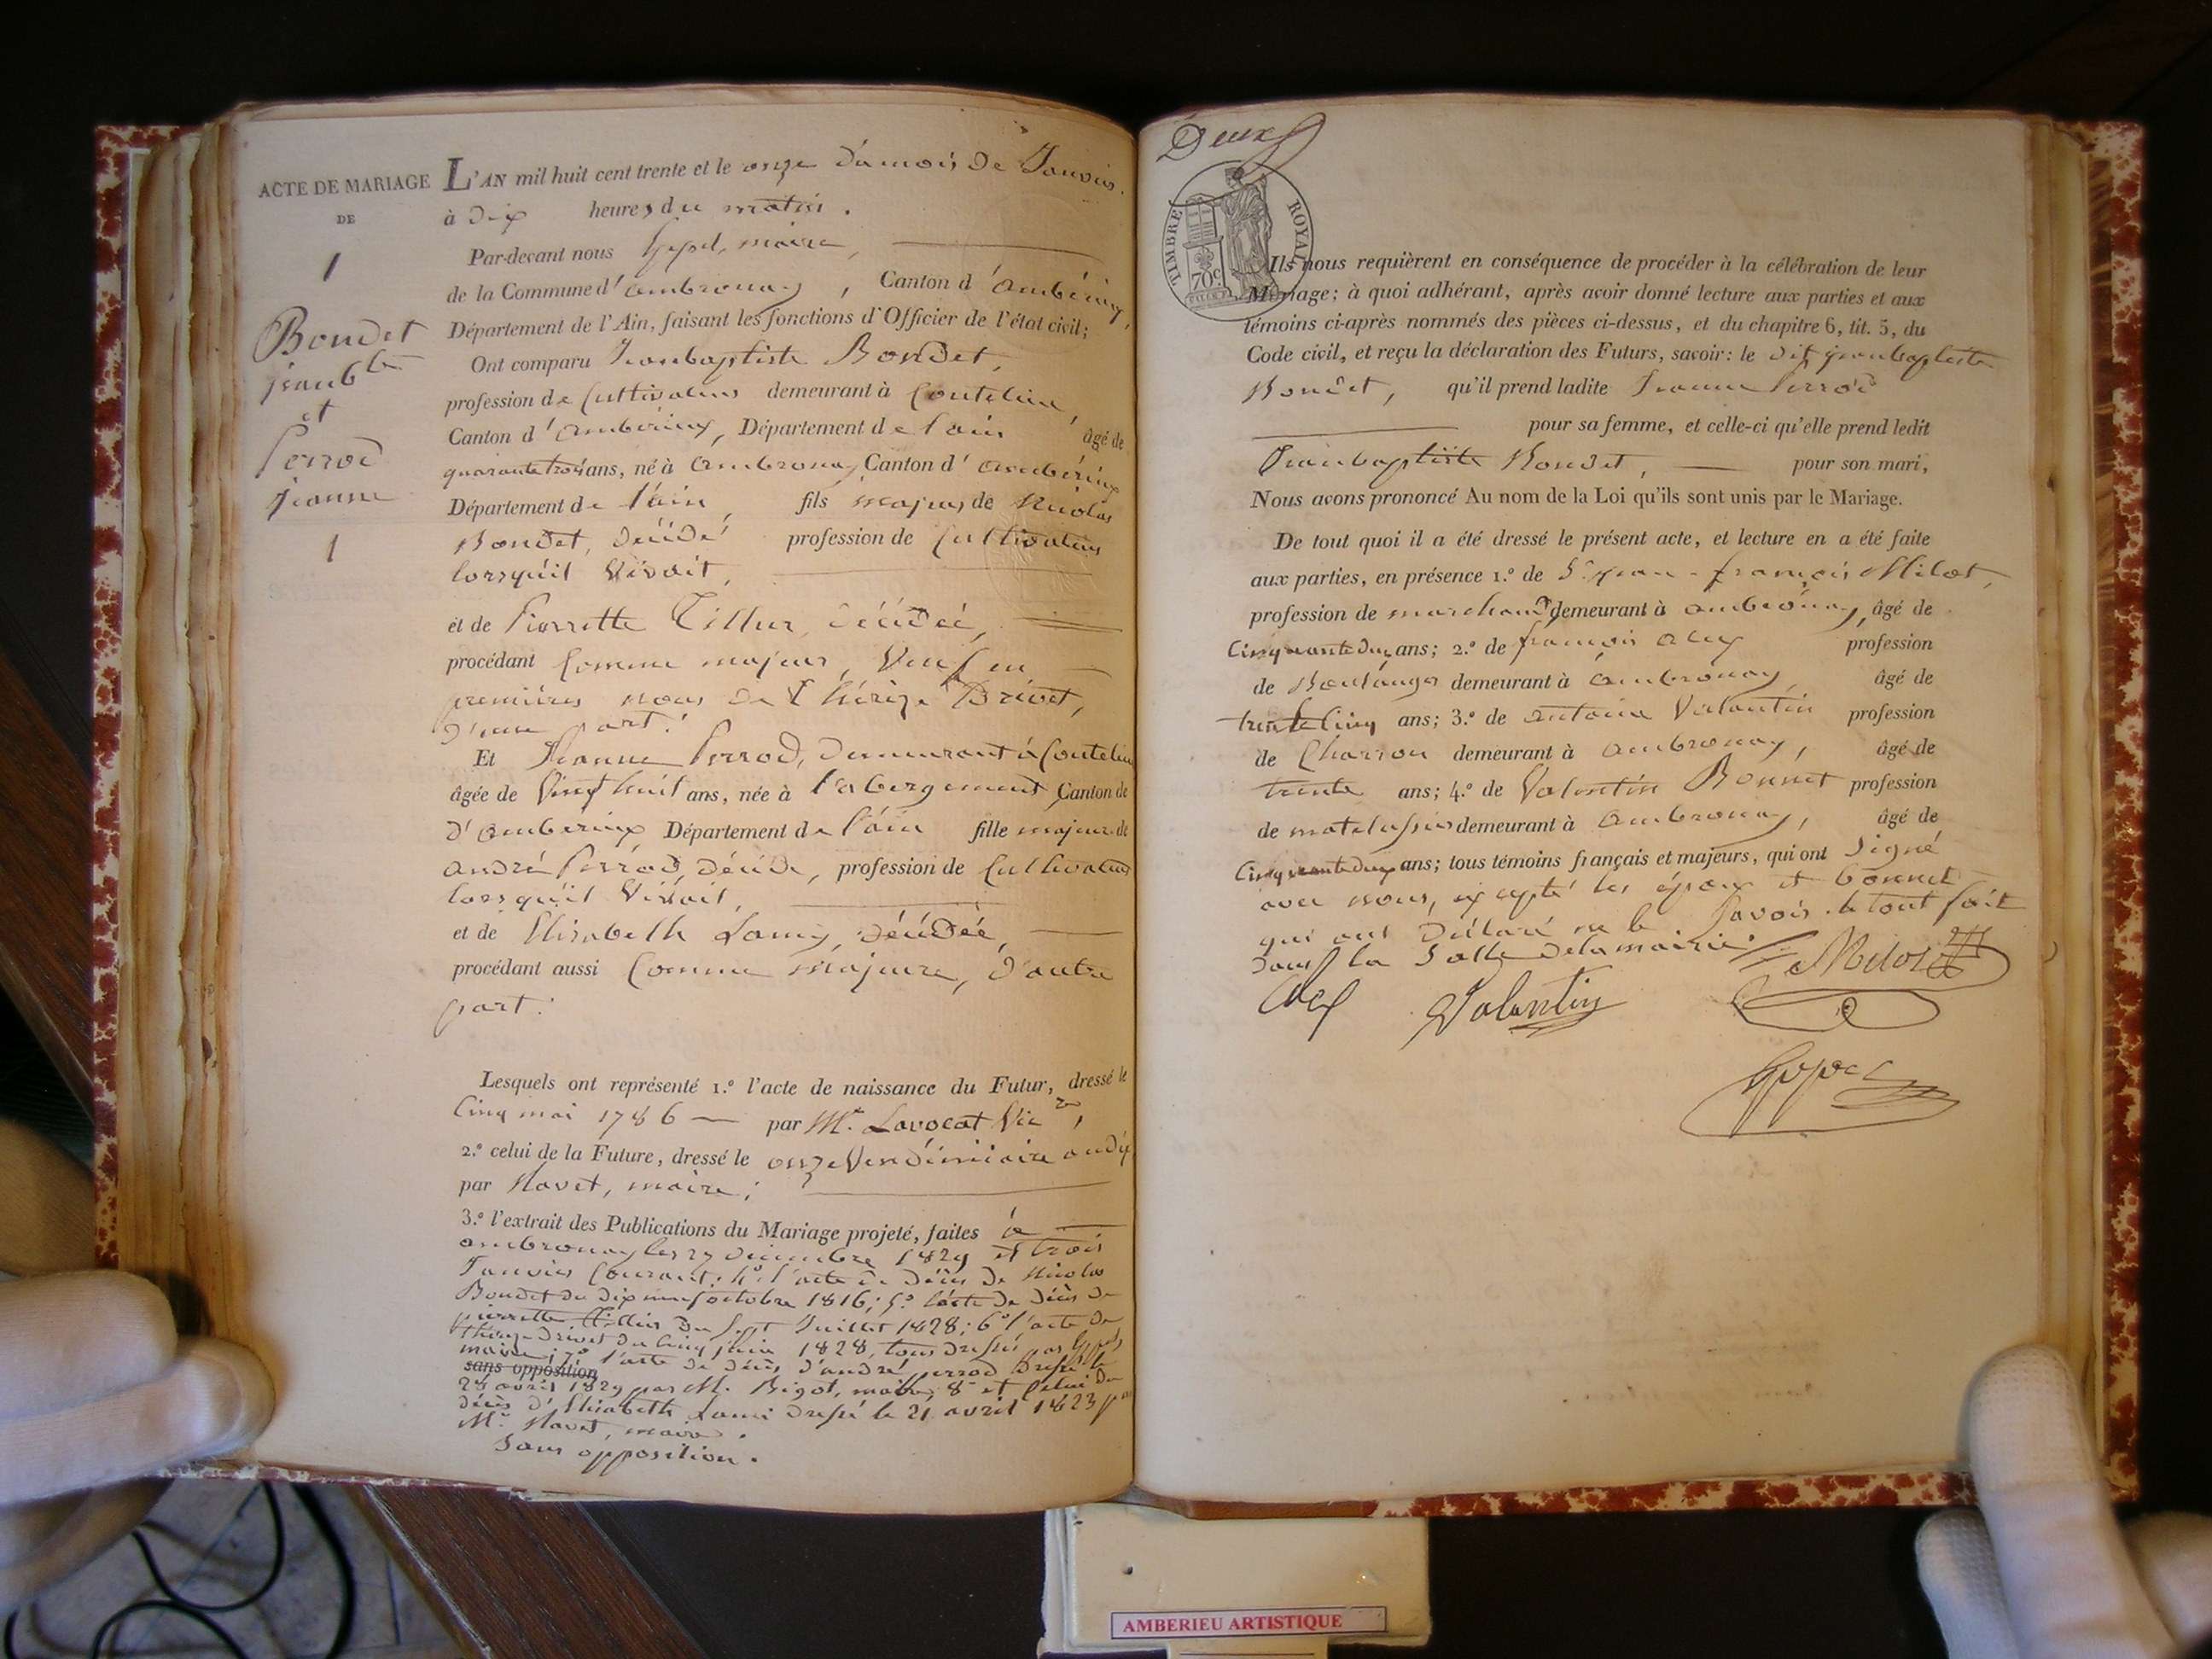 ACTE DE MARIAGE
DE
1
Bondet
jeanb.te
et
Perrod
jeanne
1
L'AN mil huit cent trente et le onze du mois de Janvier.
à dix heures du matin.
Par-devant nous maire,
de la Commune d'ambronay, Canton d'ambérieux,
Département de l'Ain, faisant les fonctions d'Officier de l'état civil;
Ont comparu Jeanbaptiste Bondet,
profession de Cultivateur demeurant à Coutelieu,
Canton d'ambérieux, Département de l'ain âgé de
quarante trois ans, né à ambronay Canton d'ambérieux
Département de l'ain, fils majeur de Nicolas
Bondet, décédé profession de Cultivateur
lorsqu'il vivait,
et de Pierrette Tillier, décédée,
procédant comme majeur, Veuf en
premières noces de Thérèze Drivet,
d'une part.
Et Jeanne Perrod, demeurant à Coutelieu
âgée de Vingt huit ans, née à l'abergement Canton de
d'ambérieux Département de l'ain fille majeure de
andré Perrod, décédé, profession de Cultivateur
lorsqu'il vivait,
et de Elisabeth Lamy, décédée,
procédant aussi comme majeure, d'autre
part.
Lesquels ont représenté 1.º l'acte de naissance du Futur, dressé le
Cinq mai 1786 — par M.r Lavocat Vic.re,
2.º celui de la Future, dressé le onze Vendémiaire an dix
par Navet, maire;
3.º l'extrait des Publications du Mariage projeté, faites à
ambronay les 27 décembre 1829 et trois
Janvier Courant; 4.º l'acte de décès de Nicolas
Bondet du dix neuf octobre 1816; 5.º l'acte de décès de
pierrette Tillier du sept Juillet 1828; 6.º l'acte de
thérèze drivet du cinq juin 1828, tous dressés par
maire; 7.º l'acte de décès d'andré perrod dressé le
sans opposition
28 avril 1829 par M. Bigot, maire, 8.º et celui de
décès d'Elisabeth Lami dressé le 21 avril 1823 par
M.r Navet, maire.
Sans opposition.
Deux
TIMBRE ROYAL
70c
Ils nous requièrent en conséquence de procéder à la célébration de leur
Mariage; à quoi adhérant, après avoir donné lecture aux parties et aux
témoins ci-après nommés des pièces ci-dessus, et du chapitre 6, tit. 5, du
Code civil, et reçu la déclaration des Futurs, savoir: le dit jeanbaptiste
Bondet, qu'il prend ladite Jeanne Perrod
pour sa femme, et celle-ci qu'elle prend ledit
Jeanbaptiste Bondet, pour son mari,
Nous avons prononcé Au nom de la Loi qu'ils sont unis par le Mariage.
De tout quoi il a été dressé le présent acte, et lecture en a été faite
aux parties, en présence 1.º de S.r jean-françois Milot,
profession de marchand demeurant à ambronay, âgé de
Cinquante deux ans; 2.º de françois profession
de Boulanger demeurant à ambronay, âgé de
trente Cinq ans; 3.º de antoine Valentin profession
de Charron demeurant à ambronay, âgé de
trente ans; 4.º de Valentin Bonnet profession
de matelassier demeurant à ambronay, âgé de
Cinquante deux ans; tous témoins français et majeurs, qui ont signé
avec nous, excepté les époux et bonnet
qui ont déclaré ne le savoir. le tout fait
dans la Salle de la mairie.
Milot
Valentin
AMBERIEU ARTISTIQUE